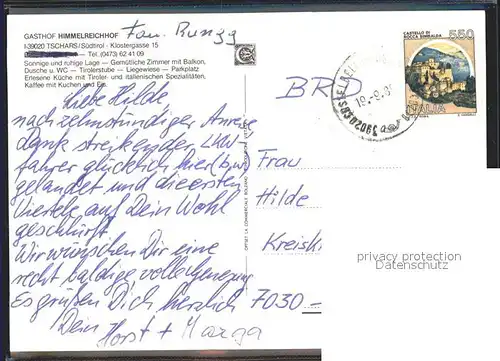 GASTHOF HIMMELREICHHOF Fam. Bunga
I-39020 TSCHARS/Südtirol - Klostergasse 15
Tel. (0473) 62 41 09
Sonnige und ruhige Lage — Gemütliche Zimmer mit Balkon,
Dusche u. WC — Tirolerstube — Liegewiese — Parkplatz
Erlesene Küche mit Tiroler- und italienischen Spezialitäten,
Kaffee mit Kuchen und Eis.
Liebe Hilde
nach zehnstündiger Anreise
dank streikender LKW
fahrer glücklich hier (bzw)
gelandet und die ersten
Viertele auf Dein Wohl
geschlürft
Wir wünschen Dir eine
recht baldige volle Genesung
Es grüßen Dich herzlich
Dein Horst + Marga
OFFSET LA COMMERCIALE BOLZANO
CASTELLO DI
ROCCA SINIBALDA
550
ITALIA
39020
BRD
Frau
Hilde
Kreisk
7030-
privacy protection
Datenschutz